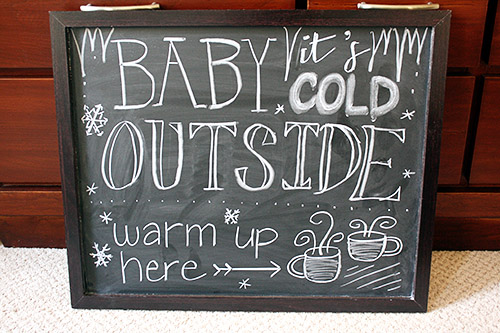 BABY it's
COLD
OUTSIDE
warm up
here